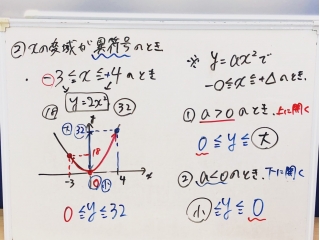 ② xの変域が異符号のとき
・ -3≦x≦+4のとき
y=2x²
(大) 32
18
0 (小)
-3
4
x
32
0≦y≦32
※ y=ax²で
-○≦x≦+△のとき
① a>0のとき 上に開く
0≦y≦(大)
② a<0のとき 下に開く
(小)≦y≦0